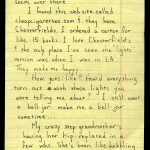 seems over there.
I found this website called
cheapcigarettes.com & they have
Chesterfields. I ordered a carton for
like 15 bucks. I love Chesterfields,
& the only place I've seen the lights
version was when I was in LA.
They make me happy.
How goes life? Heard everything
turn out with those lights you
were telling me about? I still want
a bell jar. make me a bell-jar
sometime...
My crazy step grandmother's
having her hip replaced in a
few was. She's been babbling